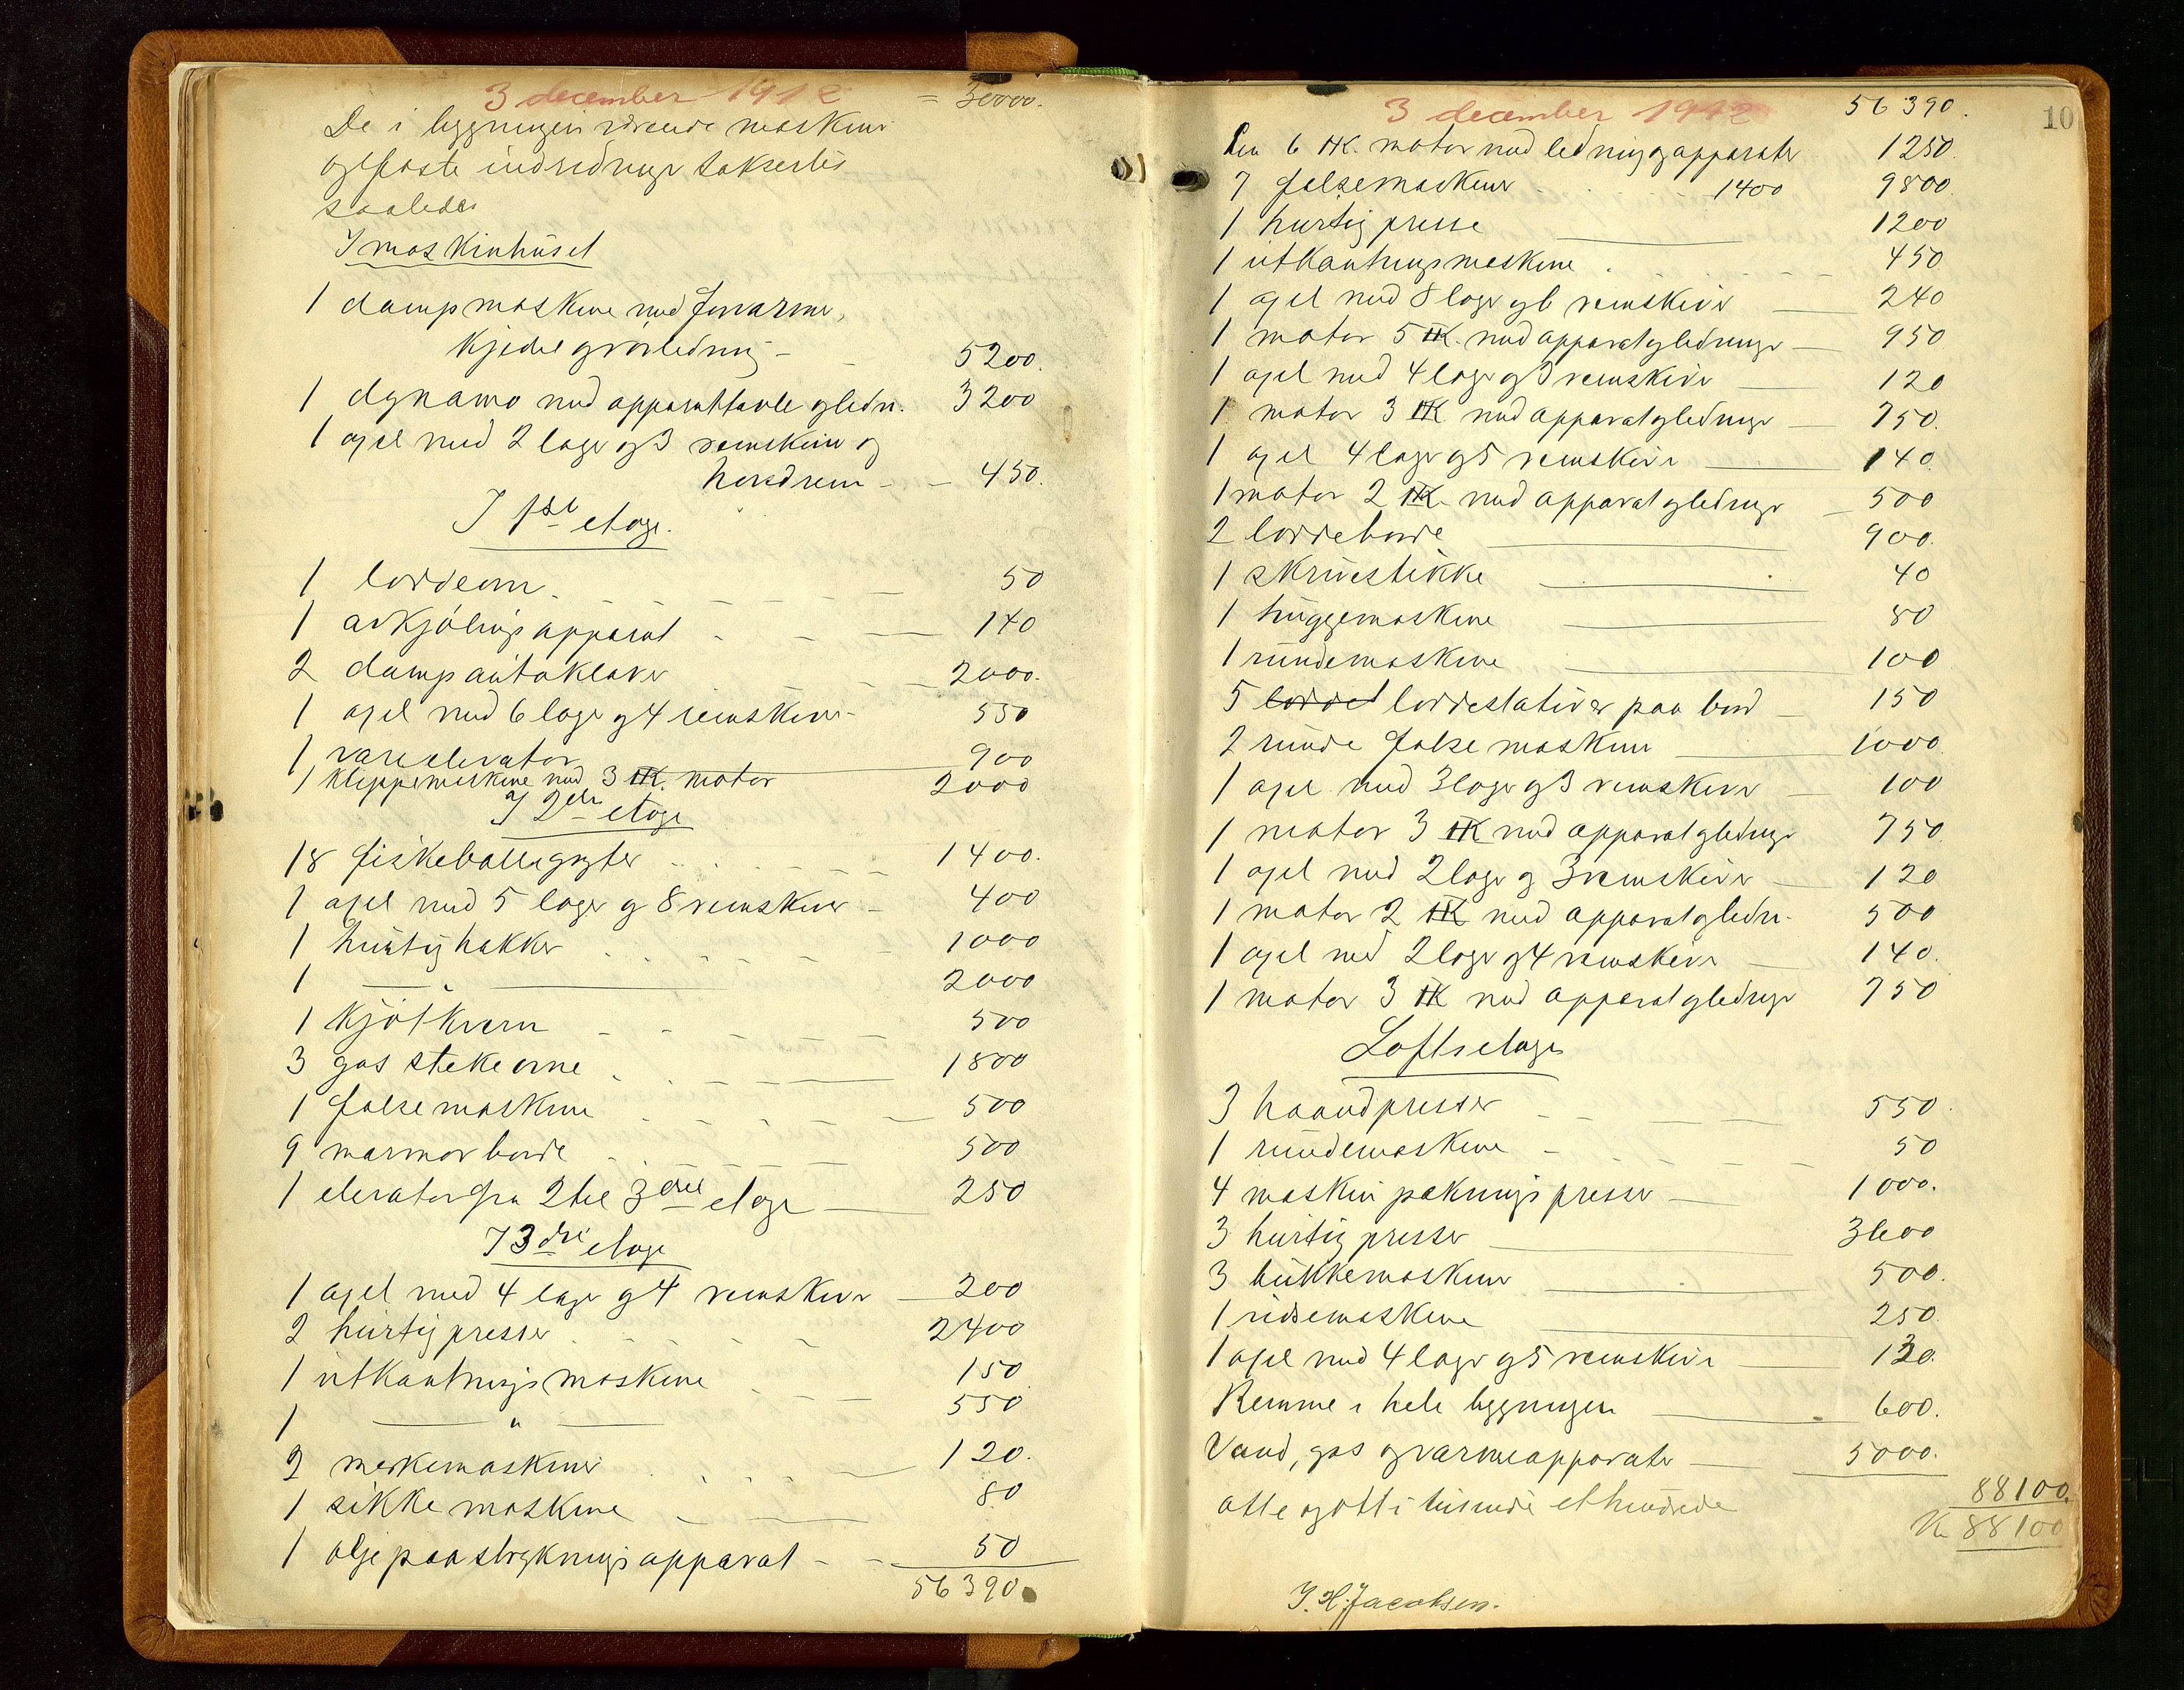 3 december 1912 = 30000.
De i bygningen værende maskiner
og faste indredninger takseres
saaledes
I maskinhuset
1 dampmaskine med forvarmer,
kjedel og rørledning - 5200.
1 dynamo med apparattavle og ledn. 3200
1 axel med 2 lager og 3 remskiver og
hovedrem - - 450.
I 1ste etage.
1 loddeovn 50
1 avkjølings apparat 140
2 dampautoklaver 2000.
1 axel med 6 lager og 4 remskiver - 550
1 vareelevator 900
1 klippemaskine med 3 HK. motor 2000
I 2den etage
18 fiskebollegryter 1400.
1 axel med 5 lager og 8 remskiver - 400
1 hurtighakker 1000
1 — " — 2000
1 kjøtkvern 500
3 gas stekeovne 1800
1 falsemaskine 500
9 marmorborde 500
1 elevator fra 2 til 3die etage 250
I 3die etage
1 axel med 4 lager og 4 remskiver 200
2 hurtigpresser 2400
1 utkantningsmaskine 150
1 — " — 550
2 merkemaskiner 120.
1 sikkemaskine 80
1 oljepaastrykningsapparat - - 50
56390.
3 december 1912 56390. 10
En 6 HK. motor med ledning og apparater 1250.
7 falsemaskiner - 1400 9800
1 hurtigpresse 1200
1 utkantningsmaskine 450
1 axel med 8 lager og 6 remskiver 240
1 motor 5 HK. med apparat og ledninger 950
1 axel med 4 lager og 3 remskiver 120
1 motor 3 HK med apparat og ledninger 750.
1 axel 4 lager og 5 remskiver 140.
1 motor 2 HK. med apparat og ledninger 500
2 loddeborde 900.
1 skruestikke 40
1 huggemaskine 80
1 rundemaskine 100
5 loddet loddestativer paa bord 150
2 runde falsemaskiner 1000
1 axel med 3 lager og 3 remskiver 100
1 motor 3 HK med apparat og ledninger 750
1 axel med 2 lager og 3 remskiver 120
1 motor 2 HK med apparat og ledn. 500
1 axel med 2 lager og 4 remskiver 140.
1 motor 3 HK med apparat og ledninger 750
Loftsetage
3 haandpresser 550.
1 rundemaskine 50
4 maskin pakningspresser 1000.
3 hurtigpresser 3600
3 bukkemaskiner 500.
1 ridsemaskine 250.
1 axel med 4 lager og 5 remskiver 130.
Remme i hele bygningen 600.
Vand, gas og varmeapparater 5000.
88100.
otte og otti tusinde et hundrede Kr 88100
J. H. Jacobsen.